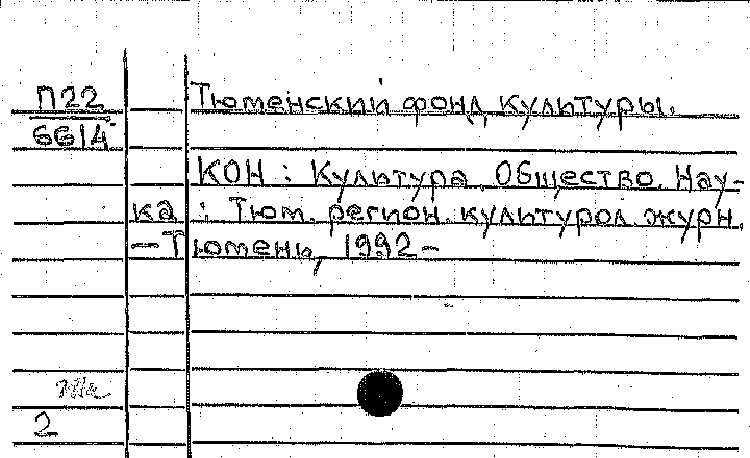 П22 Тюменский фонд культуры.
6614
КОН : Культура. Общество. Нау-
ка : Тюм. регион. культурол. журн.
— Тюмень, 1992 -
2